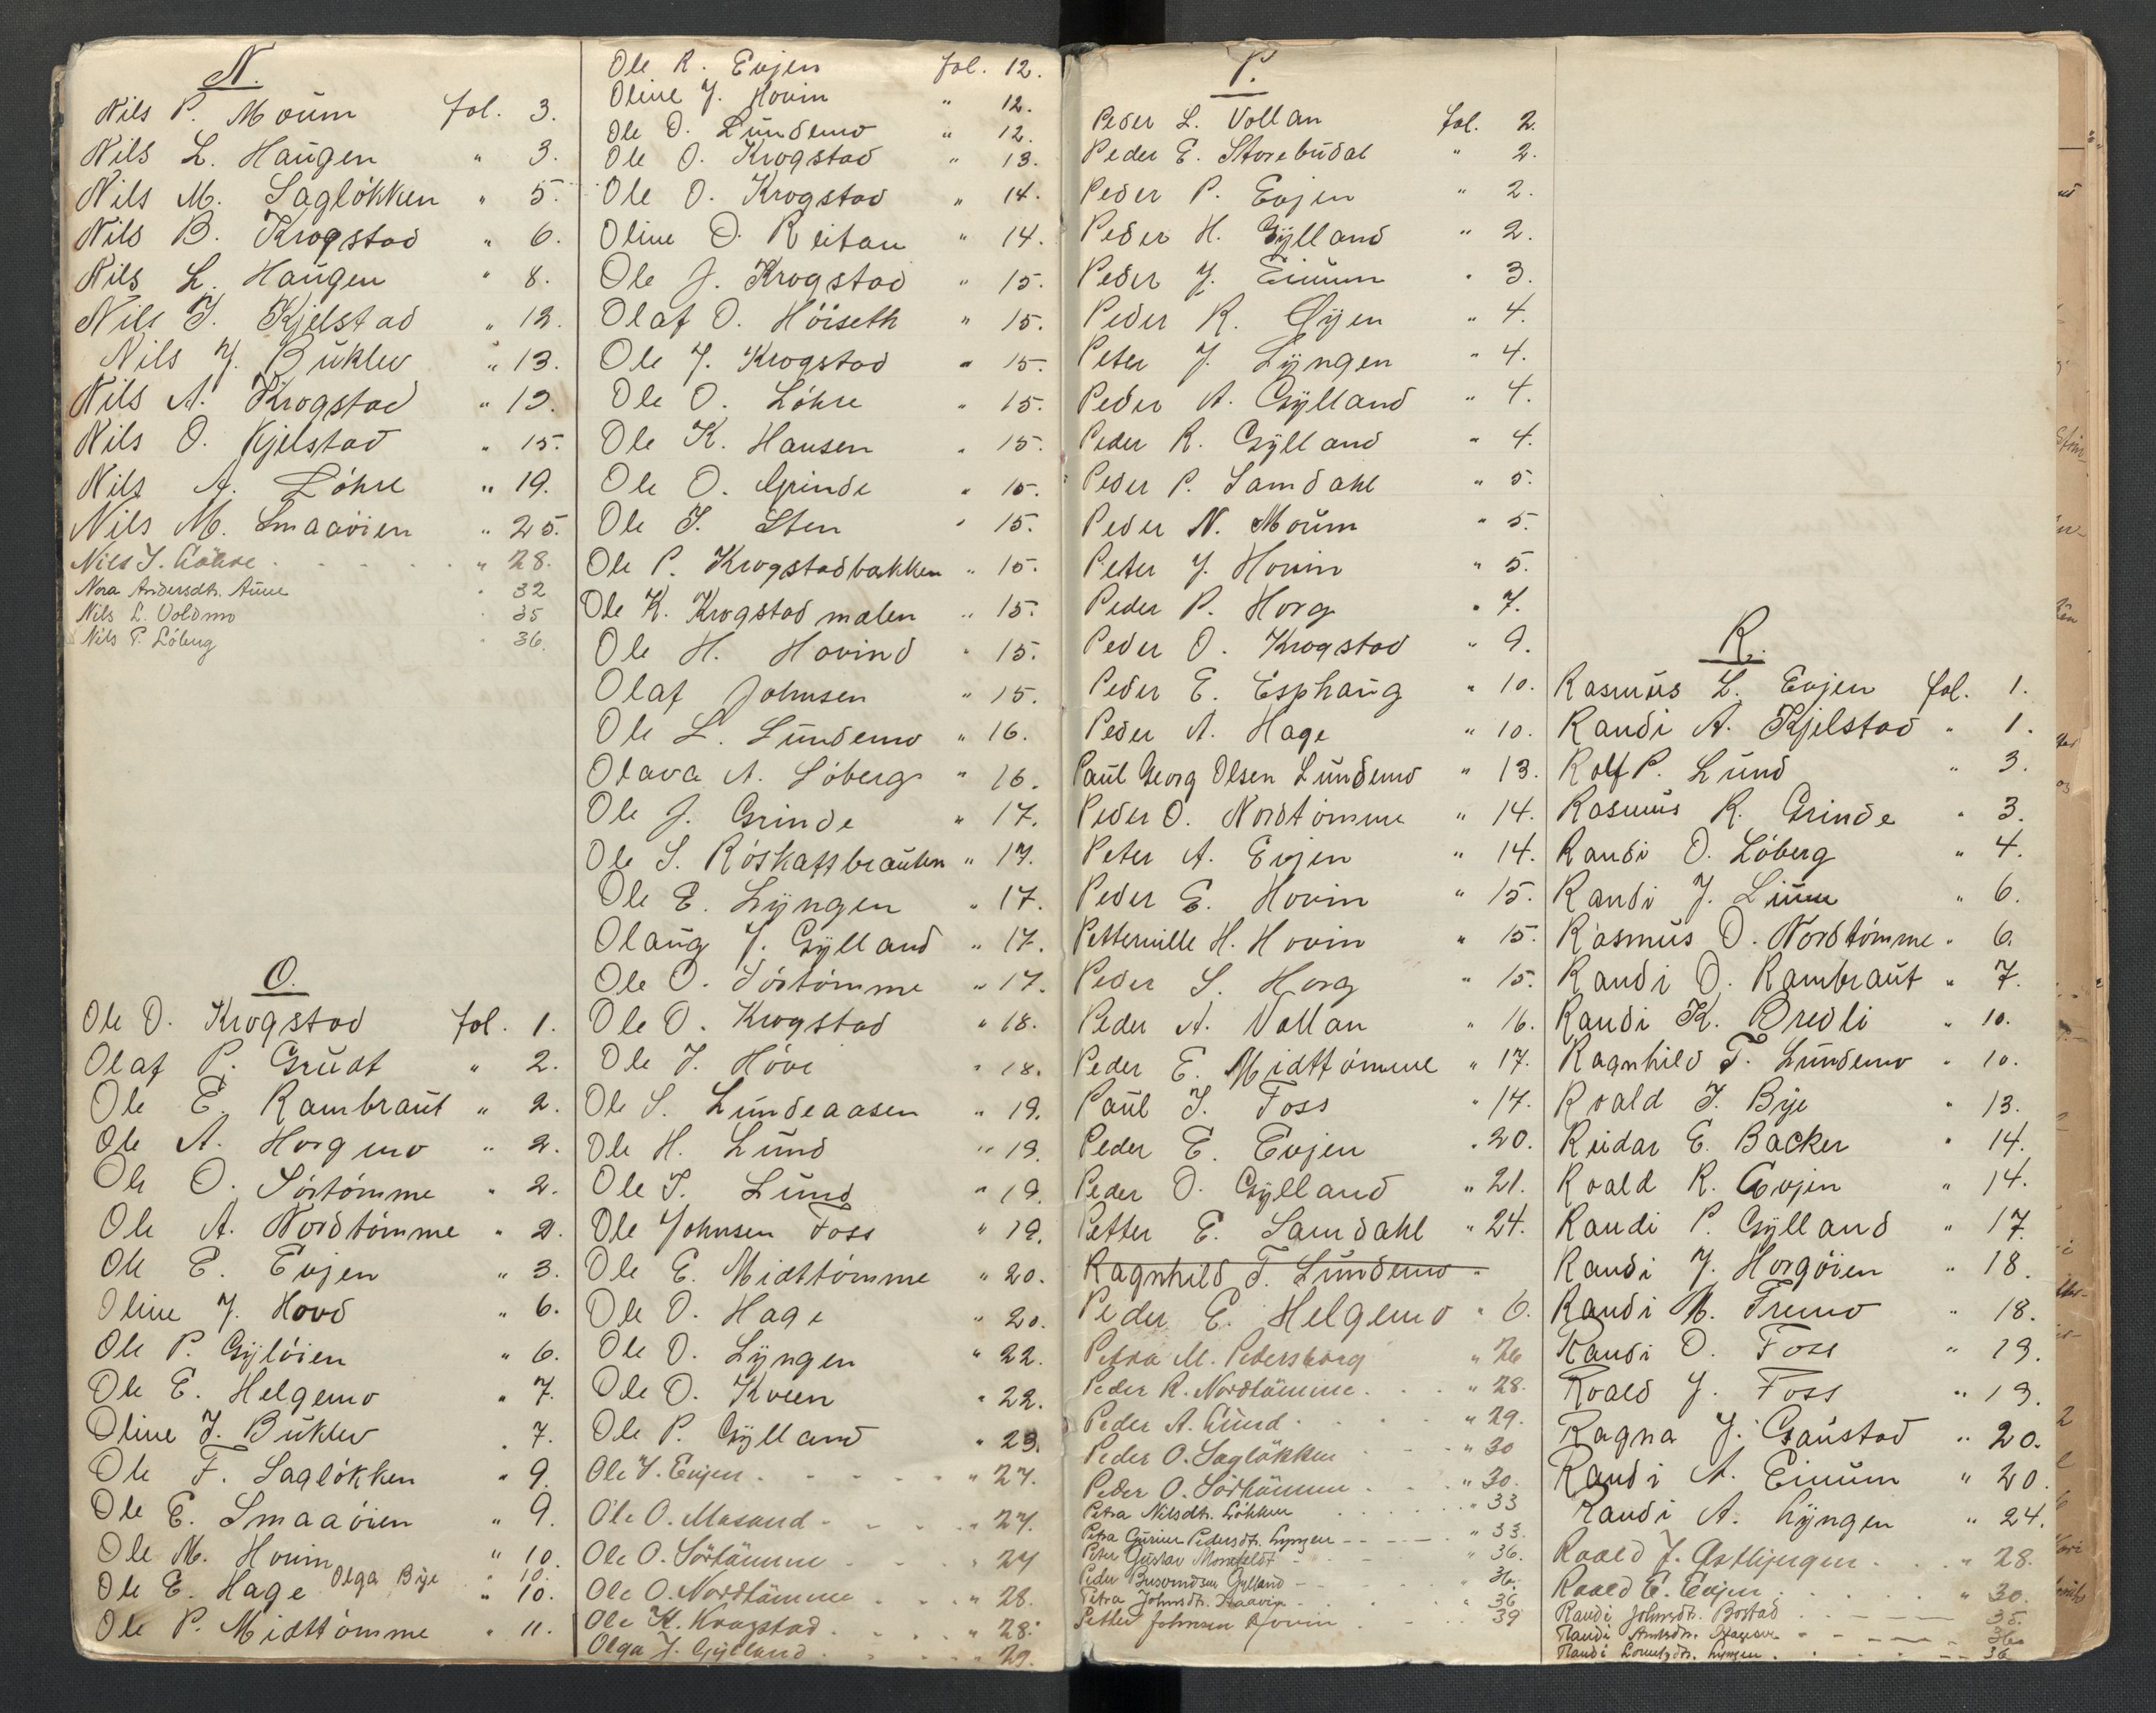 N.
Nils P. Moum fol. 3.
Nils L. Haugen " 3.
Nils M. Sagløkken " 5.
Nils B. Krogstad " 6.
Nils L. Haugen " 8.
Nils J. Kjelstad " 12.
Nils J. Buklev " 13.
Nils A. Krogstad " 13.
Nils O. Kjelstad " 15.
Nils A. Løhre " 19.
Nils M. Smaaøien " 25.
Nils J. Løhre " 28.
Nora Andersdtr. Aune " 32
Nils L. Voldmo " 35
Nils P. Løberg " 36.
O.
Ole O. Krogstad fol. 1.
Olaf P. Grudt " 2.
Ole E. Rambraut " 2.
Ole A. Horgmo " 2.
Ole O. Sørtømme " 2.
Ole A. Nordtømme " 2.
Ole E. Evjen " 3.
Oline J. Hovd " 6.
Ole P. Gyløien " 6.
Ole E. Helgemo " 7.
Oline J. Buklev " 7.
Ole F. Sagløkken " 9.
Ole E. Smaaøien " 9.
Ole M. Hovin " 10.
Olga Bye " 10.
Ole E. Hage " 10.
Ole P. Midttømme " 11.
Ole R. Evjen fol. 12.
Oline J. Hovin " 12.
Ole O. Lundemo " 12.
Ole O. Krogstad " 13.
Ole O. Krogstad " 14.
Oline O. Reitan " 14.
Ole J. Krogstad " 15.
Olaf O. Høiseth " 15.
Ole J. Krogstad " 15.
Ole O. Løhre " 15.
Ole K. Hansen " 15.
Ole O. Grinde " 15.
Ole J. Sten " 15.
Ole P. Krogstadbakken " 15.
Ole K. Krogstadmælen " 15.
Ole H. Hovind " 15.
Olaf Johnsen " 15.
Ole L. Lundemo " 16.
Olava A. Løberg " 16.
Ole J. Grinde " 17.
Ole S. Røskaftbrauten " 17.
Ole E. Lyngen " 17.
Olaug J. Gylland " 17.
Ole O. Sørtømme " 17.
Ole O. Krogstad " 18.
Ole J. Høve " 18.
Ole S. Lundeaasen " 19.
Ole H. Lund " 19.
Ole J. Lund " 19.
Ole Johnsen Foss " 19.
Ole E. Midttømme " 20.
Ole O. Hage " 20.
Ole O. Lyngen " 22.
Ole O. Kveen " 22.
Ole P. Gylland " 23.
Ole J. Evjen " 27.
Ole O. Masund " 27.
Ole O. Sørtømme " 27
Ole O. Nordtømme " 28.
Ole K. Krogstad " 28.
Olga J. Gylland " 29.
P.
Peder L. Vollan fol. 2.
Peder E. Storebudal " 2.
Peder P. Evjen " 2.
Peder H. Gylland " 2.
Peder J. Einum " 3.
Peder K. Øyen " 4.
Peter J. Lyngen " 4.
Peder A. Gylland " 4.
Peder R. Gylland " 4.
Peder P. Samdahl " 5.
Peder N. Moum " 5.
Peter J. Hovin " 5.
Peder P. Horg " 7.
Peder O. Krogstad " 9.
Peder E. Esphaug " 10.
Peder A. Hage " 10.
Paul Georg Olsen Lundemo " 13.
Peder O. Nordtømme " 14.
Peter A. Evjen " 14.
Peder E. Hovin " 15.
Petternille H. Hovin " 15.
Peder S. Horg " 15.
Peder A. Vollan " 16.
Peder E. Midttømme " 17.
Paul J. Foss " 17.
Peder E. Evjen " 20.
Peder O. Gylland " 21.
Petter E. Samdahl " 24.
Ragnhild F. Lundemo "
Peder E. Helgemo " 6.
Petra M. Pedersborg " 26
Peder R. Nordtømme " 28.
Peder A. Lund " 29.
Peder O. Sagløkken " 30
Peder O. Sørtømme " 30.
Petra Nilsdtr. Løkken " 33
Petra Gurine Pedersdtr. Lyngen " 33.
Peter Gustav Mornfeldt " 36.
Peder Gylland " 36.
Petra Johnsdtr. " 36
Petter Johnsen Hovin 39
R.
Rasmus L. Evjen fol. 1.
Randi A. Kjelstad " 1.
Rolf P. Lund " 3.
Rasmus R. Grinde " 3.
Randi O. Løberg " 4.
Randi J. Lium " 6.
Rasmus O. Nordtømme " 6.
Randi O. Rambraut " 7.
Randi K. Bredli " 10.
Ragnhild F. Lundemo " 10.
Roald J. Bye " 13.
Reidar E. Backer " 14.
Roald R. Evjen " 14.
Randi P. Gylland " 17.
Randi J. Horgøien " 18.
Randi M. Fremo " 18.
Randi O. Foss " 19.
Roald J. Foss " 19.
Ragna J. Gaustad " 20.
Randi A. Einum " 20.
Randi A. Lyngen " 24.
Roald J. Østbjergen " 28.
Roald E. Evjen " 30.
Randi Johnsdtr. Bostad 35.
Randi Arntsdtr. 36
Randi Lorentsdtr. Lyngen 36